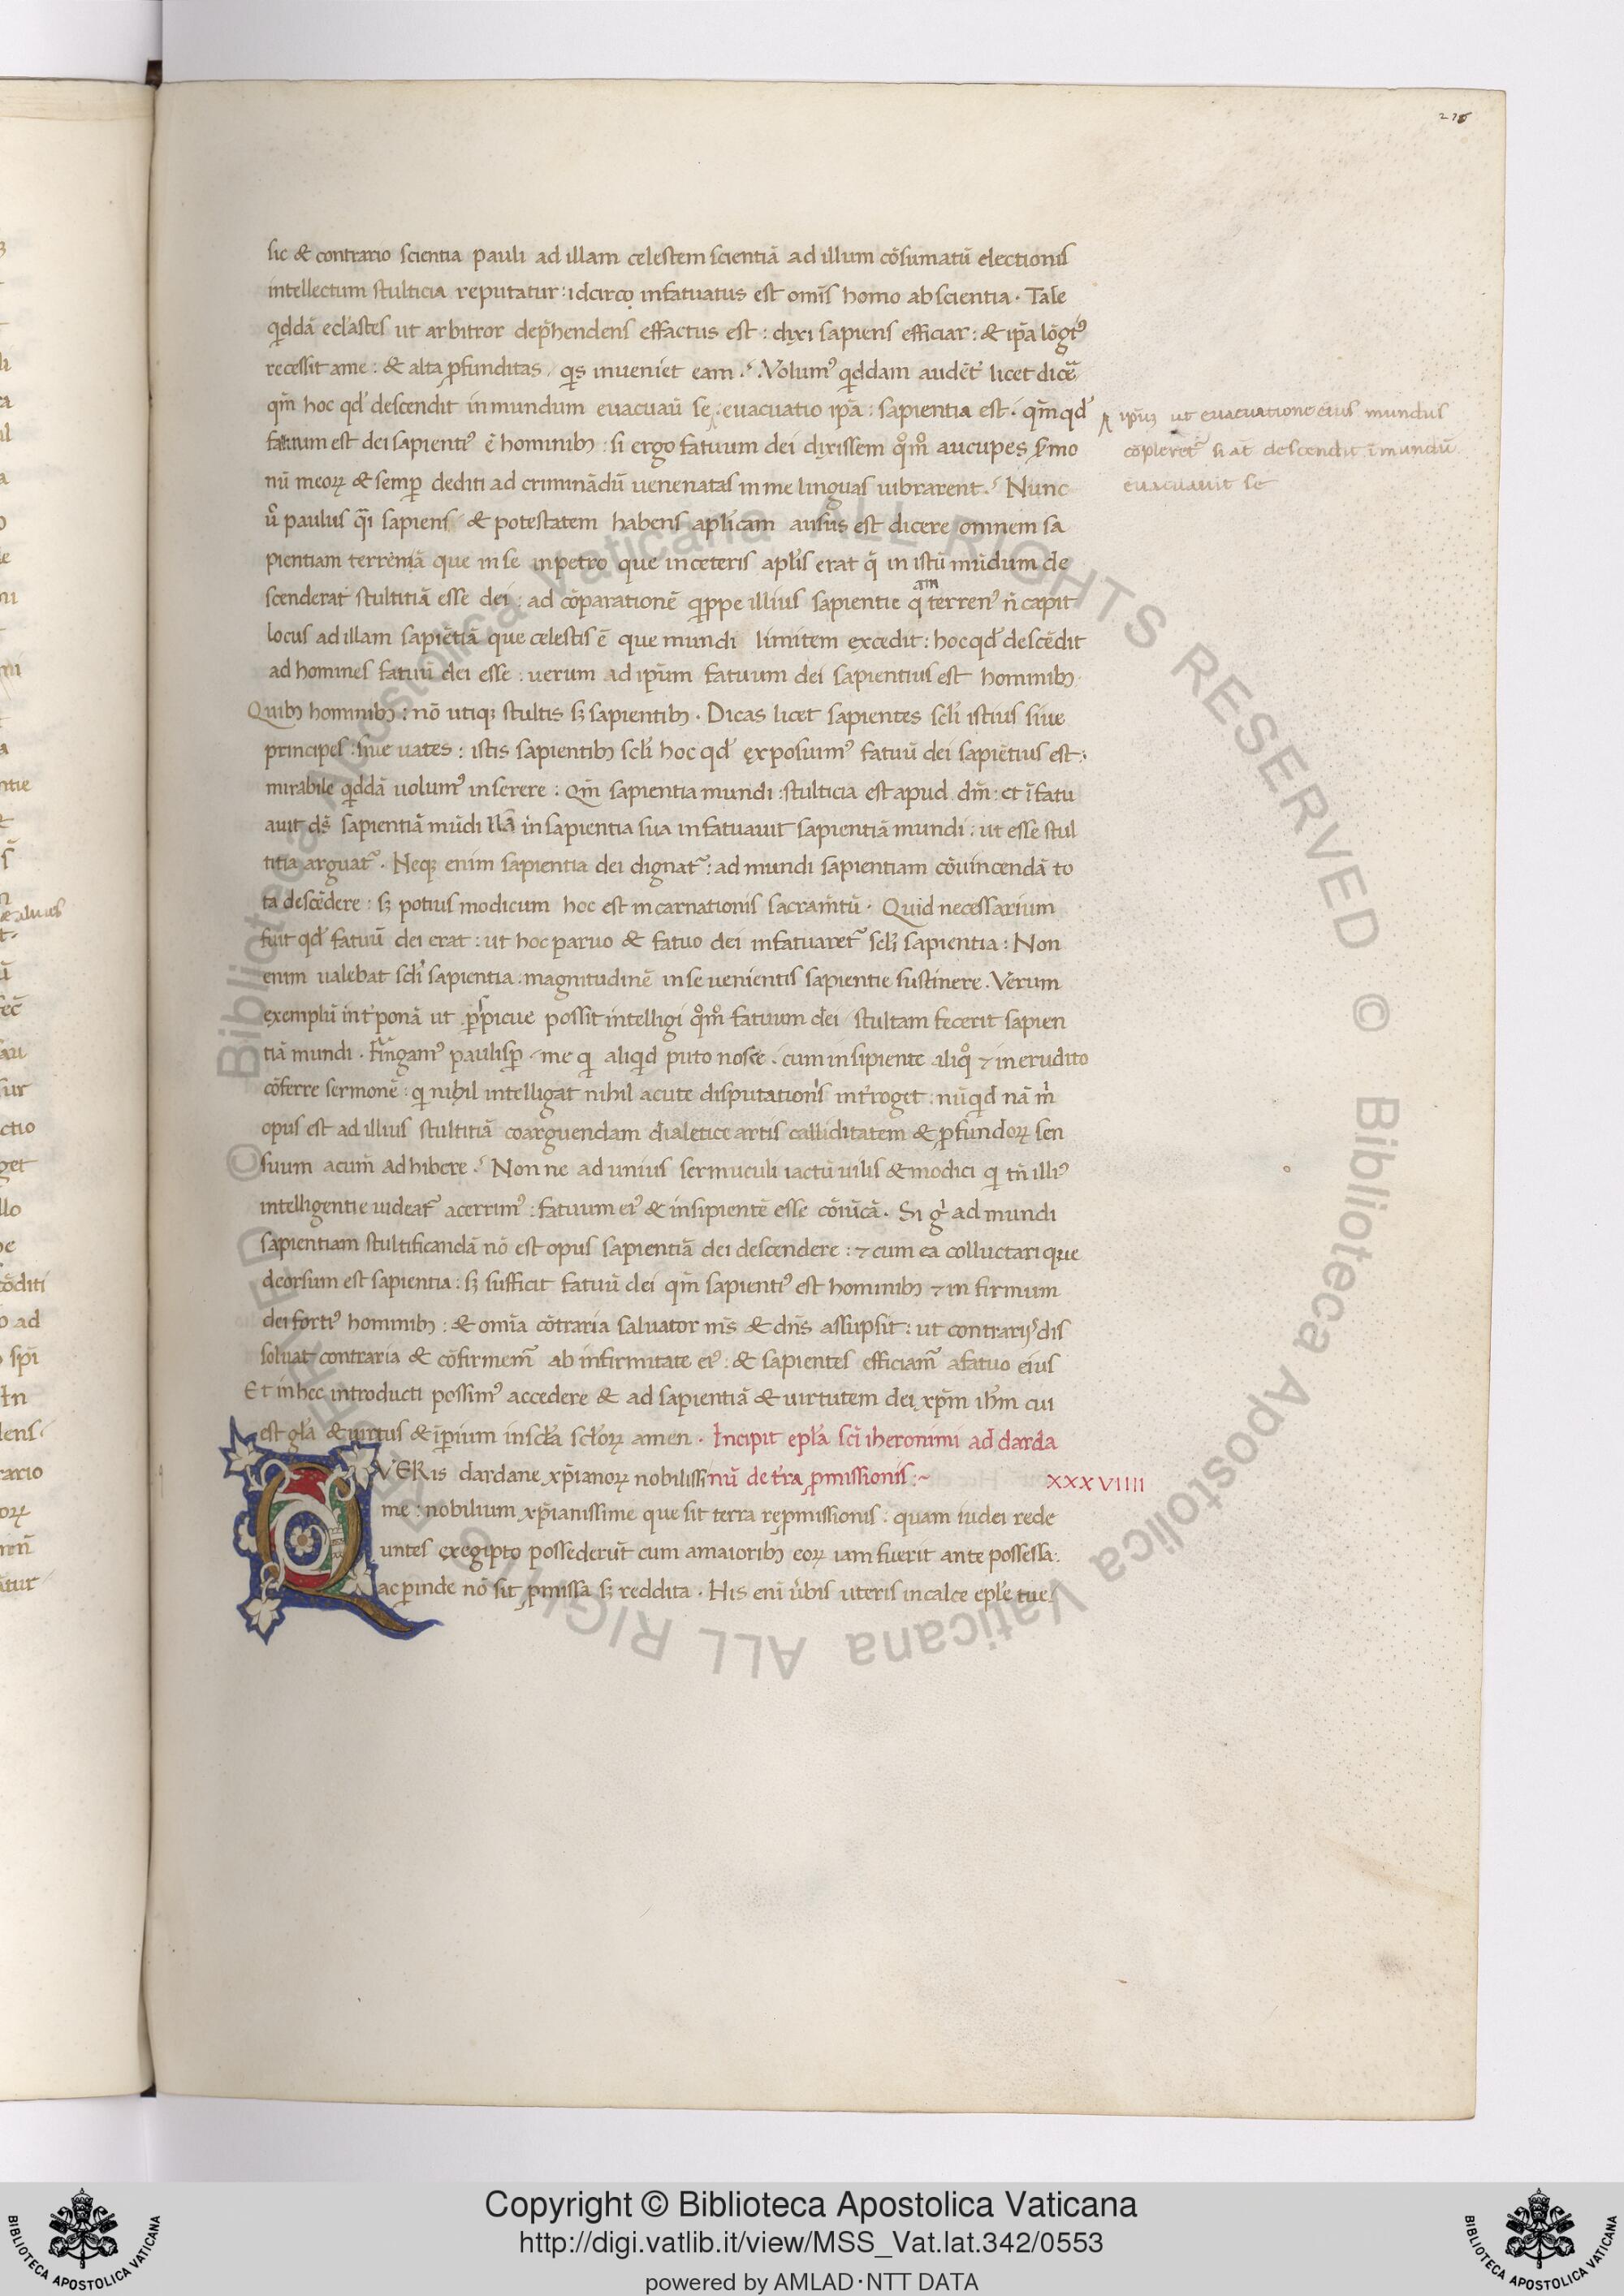 276
sic & contrario scientia pauli ad illam celestem scientiā ad illum cōsumatū electionis
intellectum stulticia reputatur: idcirco infatuatus est omīs homo ab scientia. Tale
qddā ecl'astes ut arbitror dep̄hendens effactus est: dixi sapiens efficiar: & ip̄a lōgi⁹
recessit a me: & alta p̱funditas, qis inueniet eam. Volum⁹ qddam audēt' licet dicē
qm̄ hoc qd' descendit in mundum euacuaū se. euacuatio ip̄a: sapientia est. qm̄ qd'
fatuum est dei sapienti⁹ ē hominib;: si ergo fatuum dei dixissem qm̊ aucupes s̱mo
ip̄ius ut euacuatione eius mundus
cōpleret᷑ si at descendit ī mundū
euacuauit se
nū meoꝝ & semp̱ dediti ad criminādū uenenatas in me linguas uibrarent. Nunc
ů paulus q̄i sapiens & potestatem habens aplicam ausus est dicere omnem sa
pientiam terrenā que in se in petro que in ceteris apl'is erat q̄ in istū mūdum de
scenderat stultitiā esse dei: ad cōparationē qppe illius sapientie q am terren⁹ n̄ capit
locus ad illam sapiētiā que celestis ē que mundi limitem excedit: hoc qd' descēdit
ad homines fatuū dei esse: uerum ad ipūm fatuum dei sapientius est hominib;
Quib; hominib;: nō utiq; stultis s; sapientib;. Dicas licet sapientes scl'i istius siue
principes: siue uates: istis sapientib; scl'i hoc qd' exposuim⁹ fatuū dei sapiētius est:
mirabile qddā uolum⁹ inserere: Qm̄ sapientia mundi: stulticia est apud dm̄: et īfatu
auit ds̄ sapientiā mūdi Nā in sapientia sua infatuauit sapientiā mundi: ut esse stul
titia arguat᷑. Neq; enim sapientia dei dignat᷑: ad mundi sapientiam cōuincendā to
ta descēdere: s; potius modicum hoc est incarnationis sacram̄tū. Quid necessarium
fuit qd' fatuū dei erat: ut hoc paruo & fatuo dei infatuaret᷑ scl'i sapientia: Non
enim ualebat scl'i sapientia. magnitudinē in se uenientis sapientie sustinere. Verum
exemplū int'ponā ut p̱spicue possit intelligi qm̊ fatuum dei stultam fecerit sapien
tiā mundi. fingam⁹ paulisp̱ me qi aliqid puto nosce. cum insipiente aliqo ⁊ in erudito
cōferre sermonē: qi nihil intelligat nihil acute disputationis int'roget: nūqid nā m'
opus est ad illius stultitiā coarguendam dialetice artis calliditatem & p̱fundoꝝ sen
suum acum̄ adhibere. Non ne ad unius sermuculi iactū uilis & modici qi tn̄ illi⁹
intelligentie uideat᷑ acerrim⁹: fatuum ei⁹ & insipientē esse cōiūcā. Si g' ad mundi
sapientiam stultificandā nō est opus sapientiā dei descendere: ⁊ cum ea colluctari que
deorsum est sapientia: s; sufficit fatuū dei qm̄ sapienti⁹ est hominib; ⁊ in firmum
dei forti⁹ hominib;: & omīa cōtraria saluator nr̄s & dn̄s assūpsit: ut contrarijs dis
soluat contraria & cōfirmem᷑ ab infirmitate ei⁹: & sapientes efficiam᷑ a fatuo eius
Et in hec introducti possim⁹ accedere & ad sapientiā & uirtutem dei xp̄m ih̄m cui
est gl'a & uirtus & īperium in scl'a scl'oꝝ amen. Incipit epl'a sc̄i iheronimi ad darda
QVERis dardane xp̄ianoꝝ nobilissi nū de t'ra p̱missionis:~ XXXVIIII
me: nobilium xp̄ianissime que sit terra rep̱missionis: quam iudei rede
untes ex egipto possederūt cum a maiorib; eoꝝ iam fuerit ante possessa:
ac p̱inde nō sit p̱missa s; reddita. His eni ūbis uteris in calce epl'e tue.
Copyright © Biblioteca Apostolica Vaticana
http://digi.vatlib.it/view/MSS_Vat.lat.342/0553
powered by AMLAD·NTT DATA